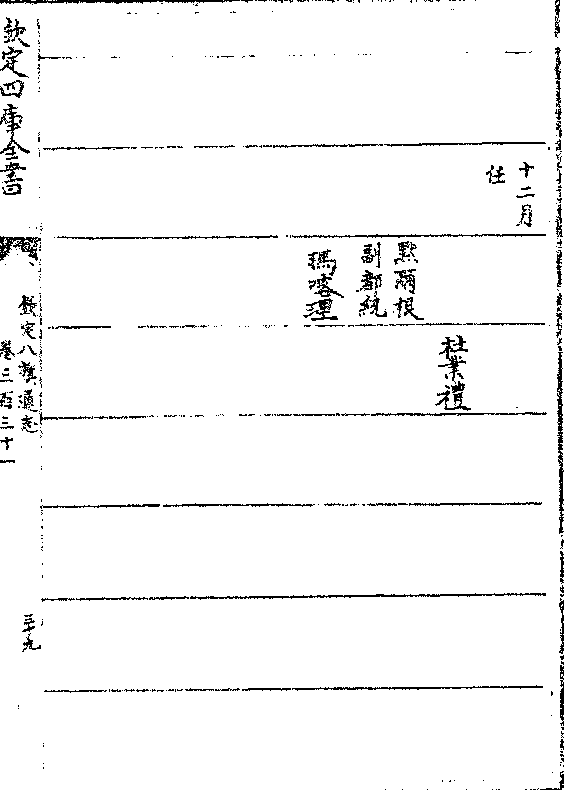 十二月
任
杜業禮
黙爾根
副都統
瑪喀理
欽定四庫全書
欽定八旗通志
卷三百三十一
三十九